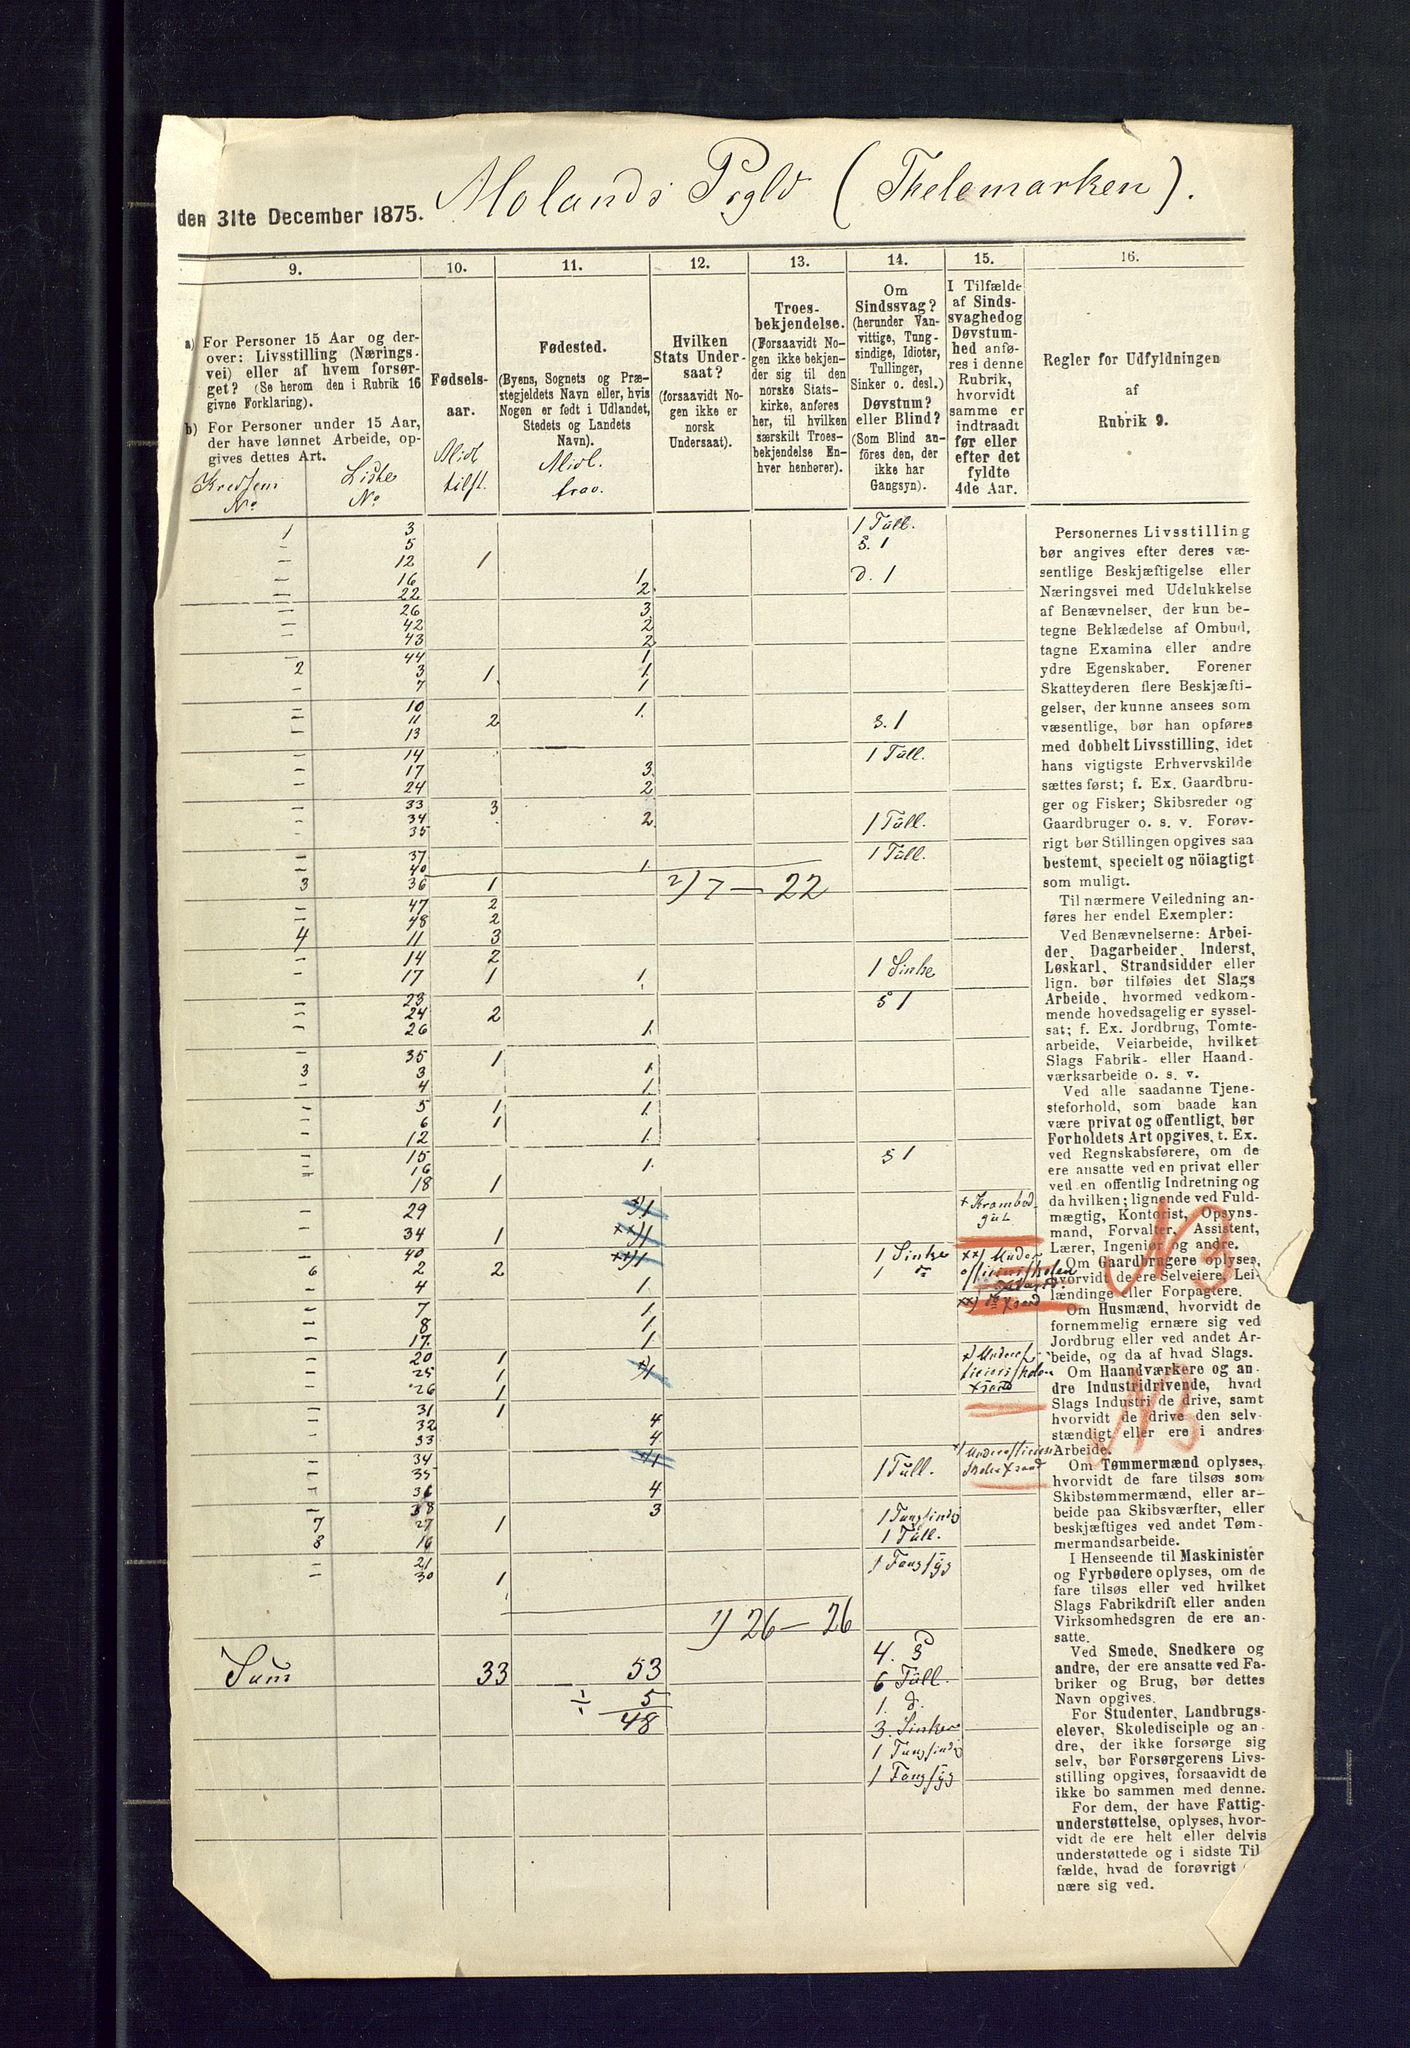 Molands Prgld (Thelemarken).
den 31te December 1875.
9. 10. 11. 12. 13. 14. 15. 16.
a) For Personer 15 Aar og der-
over: Livsstilling (Nærings-
vei) eller af hvem forsør-
get? (Se herom den i Rubrik 16
givne Forklaring).
b) For Personer under 15 Aar,
der have lønnet Arbeide, op-
gives dettes Art.
Kredsens
No
Liste
No
Fødsels-
aar.
Midl
tilst.
Fødested.
(Byens, Sognets og Præ-
stegjeldets Navn eller, hvis
Nogen er født i Udlandet,
Stedets og Landets
Navn).
Midl.
frav.
Hvilken
Stats Under-
saat?
(forsaavidt No-
gen ikke er
norsk
Undersaat).
Troes-
bekjendelse.
(Forsaavidt No-
gen ikke bekjen-
der sig til den
norske Stats-
kirke, anføres
her, til hvilken
særskilt Troes-
bekjendelse En-
hver henhører).
Om
Sindssvag?
(herunder Van-
vittige, Tung-
sindige, Idioter,
Tullinger,
Sinker o. desl.)
Døvstum?
eller Blind?
(Som Blind an-
føres den, der
ikke har
Gangsyn).
I Tilfælde
af Sinds-
svaghed og
Døvstum-
hed anfø-
res i denne
Rubrik,
hvorvidt
samme er
indtraadt
før eller
efter det
fyldte
4de Aar.
Regler for Udfyldningen
af
Rubrik 9.
1 3 1 Tull.
- 5 S. 1
- 12 1
- 16 1 d. 1
- 22 2
- 26 3
- 42 2
- 43 2
- 44 1
2 3 1 1
- 7 1
- 10 1
- 11 2 S. 1
- 13
- 14 1 Tull.
- 17 3
- 24 2
- 33 3
- 34 2 1 Tull.
- 35
- 37 1 Tull.
- 40 1
3 36 1 2) 7 - 22
- 47 2
- 48 2
4 11 3
- 14 2
- 17 1 1 1 Sinke
- 23 S 1
- 24 2
- 26 1
- 35 1
3 3 1
- 4 1
- 5 1 1
- 6 1
- 12 1
- 15 S 1
- 16 1
- 18 1
- 29 x) 1 x Krambod-
- 34 1 xx) 1
- 40 xx) 1 1 Sinke xx) Under
6 2 2 1 do
- 4 1
- 7 1
- 8 1
- 17. 1
- 20 1 x) Underof-
- 25 1 x) 1
- 26 1
- 31 1
- 32 4
- 33 4
- 34 x) 1
- 35 1 Tull.
- 36 4
- 38 3
7 27 1 1 Tungsindig
8 16 1 Tull.
- 21 1 Tangsyg
- 30 1
1) 26 - 26
Sum 33 53 4. S
÷ 5 6 Tull.
48 1. d.
3. Sinker
1 Tungsindig
1 Tangsyg
NB
NB
Personernes Livsstilling
bør angives efter deres væ-
sentlige Beskjæftigelse eller
Næringsvei med Udelukkelse
af Benævnelser, der kun be-
tegne Beklædelse af Ombud,
tagne Examina eller andre
ydre Egenskaber. Forener
Skatteyderen flere Beskjæfti-
gelser, der kunne ansees som
væsentlige, bør han opføres
med dobbelt Livsstilling, idet
hans vigtigste Erhvervskilde
sættes først; f. Ex. Gaardbru-
ger og Fisker; Skibsreder og
Gaardbruger o. s. v. Forøv-
rigt bør Stillingen opgives saa
bestemt, specielt og nöiagtigt
som muligt.
Til nærmere Veiledning an-
føres her endel Exempler:
Ved Benævnelserne: Arbei-
der, Dagarbeider, Inderst,
Løskarl, Strandsidder eller
lign. bør tilføies det Slags
Arbeide, hvormed vedkom-
mende hovedsagelig er syssel-
sat; f. Ex. Jordbrug, Tomte-
arbeide, Veiarbeide, hvilket
Slags Fabrik- eller Haand-
værksarbeide o. s. v.
Ved alle saadanne Tjene-
steforhold, som baade kan
være privat og offentligt, bør
Forholdets Art opgives, t. Ex.
ved Regnskabsførere, om de
ere ansatte ved en privat eller
ved en offentlig Indretning og
da hvilken; lignende ved Fuld-
mægtig, Kontorist, Opsyns-
mand, Forvalter, Assistent,
Lærer, Ingeniør og andre.
Om Gaardbrugere oplyses,
hvorvidt de ere Selveiere, Lei-
lændinge eller Forpagtere.
Om Husmænd, hvorvidt de
fornemmelig ernære sig ved
Jordbrug eller ved andet Ar-
beide, og da af hvad Slags.
Om Haandværkere og an-
dre Industridrivende, hvad
Slags Industri de drive, samt
hvorvidt de drive den selv-
stændigt eller ere i andres
Arbeide.
Om Tømmermænd oplyses,
hvorvidt de fare tilsøs som
Skibstømmermænd, eller ar-
beide paa Skibsværfter, eller
beskjæftiges ved andet Tøm-
mermandsarbeide.
I Henseende til Maskinister
og Fyrbødere oplyses, om de
fare tilsøs eller ved hvilket
Slags Fabrikdrift eller anden
Virksomhedsgren de ere an-
satte.
Ved Smede, Snedkere og
andre, der ere ansatte ved Fa-
briker og Brug, bør dettes
Navn opgives.
For Studenter, Landbrugs-
elever, Skoledisciple og an-
dre, der ikke forsørge sig
selv, bør Forsørgerens Livs-
stilling opgives, forsaavidt de
ikke bo sammen med denne.
For dem, der have Fattig-
understøttelse, oplyses, hvor-
vidt de ere helt eller delvis
understøttede og i sidste Til-
fælde, hvad de forøvrigt
nære sig ved.